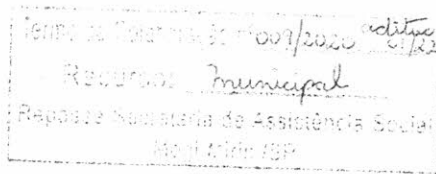 Termo de Colaboração nº 009/2020 aditivo 01/22
Recursos Municipal
Repasse Secretaria de Assistência Social
Mogi Mirim /SP